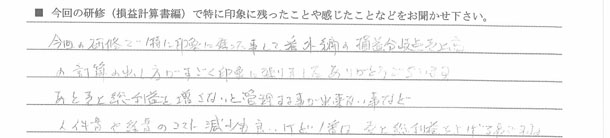 ■ 今回の研修（損益計算書編）で特に印象に残ったことや感じたことなどをお聞かせ下さい。
今回の研修で1番特に印象に残った事して 損益分岐点売上高
の計算の出し方がすごく印象に残りました ありがとうございます
あと売上総利益を増さないと 事が出来ない事など
人件費や経費のコスト減少も良いけど1番は 売上総利益